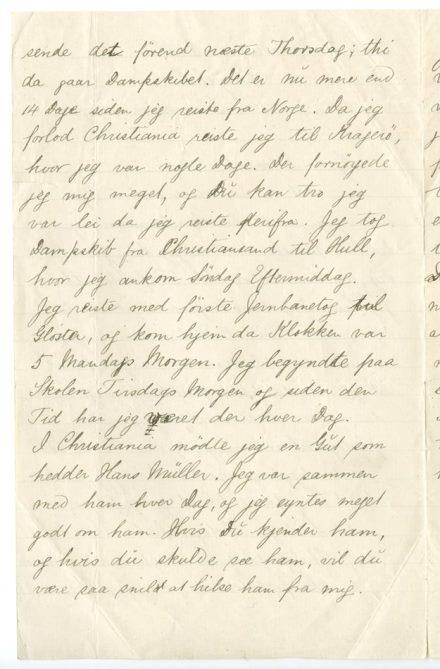 sende det förend næste Thorsdag; thi
da gaar Dampskibet. Det er nu mere end
14 Dage siden jeg reiste fra Norge. Da jeg
forlod Christiania reiste jeg til Kragerö,
hvor jeg var nogle Dage. Der fornöyede
jeg mig meget, og Du kan tro jeg
var lei da jeg reiste derifra. Jeg tog
Dampskib fra Christiansand til Hull,
hvor jeg ankom Söndag Eftermiddag.
Jeg reiste med förste Jernbanetog til
Gloster, og kom hjem da Klokken var
5 Mandags Morgen. Jeg begyndte paa
Skolen Tirsdags Morgen og siden den
Tid har jeg været der hver Dag.
I Christiania mödte jeg en Gut som
hedder Hans Müller. Jeg var sammen
med ham hver Dag, og jeg syntes meget
godt om ham. Hvis Du kjender ham,
og hvis du skulde see ham, vil du
være saa snild at hilse ham fra mig.